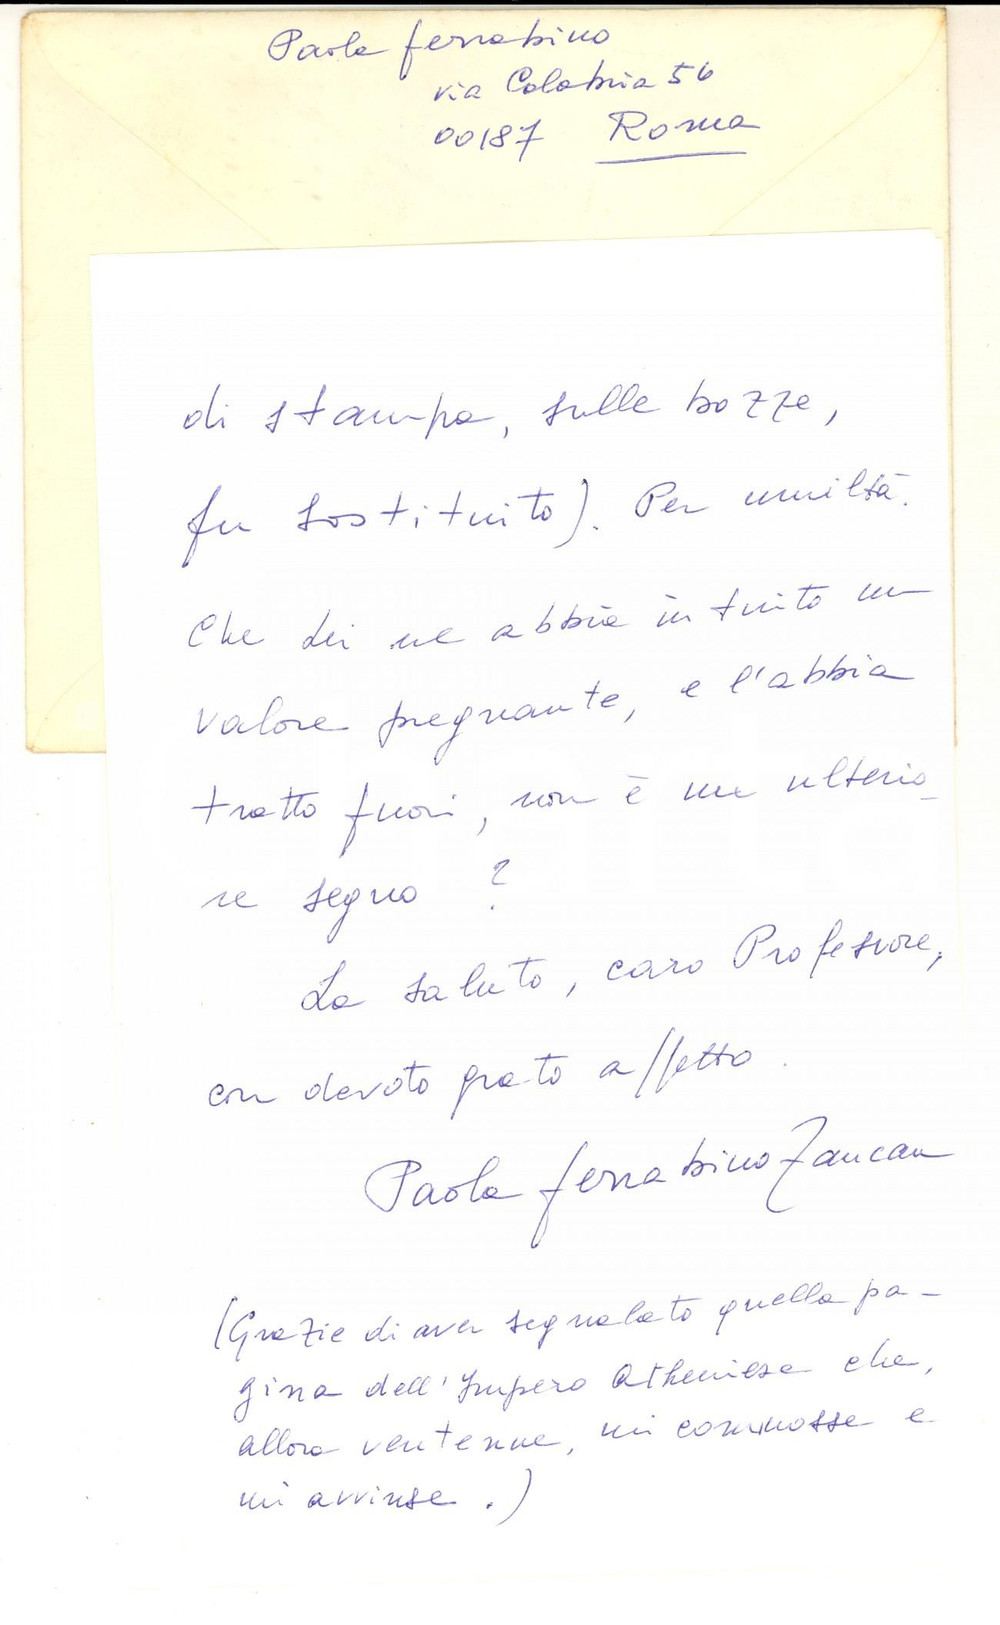 Paola Ferrabino
via Calabria 56
00187 Roma
di stampa, sulle bozze,
fu sostituito). Per umiltà.
Che Lei ne abbia intuito un
valore pregnante, e l'abbia
tratto fuori, non è un ulterio-
re segno?
La saluto, caro Professore,
con devoto grato affetto.
Paola Ferrabino Zancan
(Grazie di aver segnalato quella pa-
gina dell'Impero Atheniese che,
allora ventenne, mi commosse e
mi avvinse.)